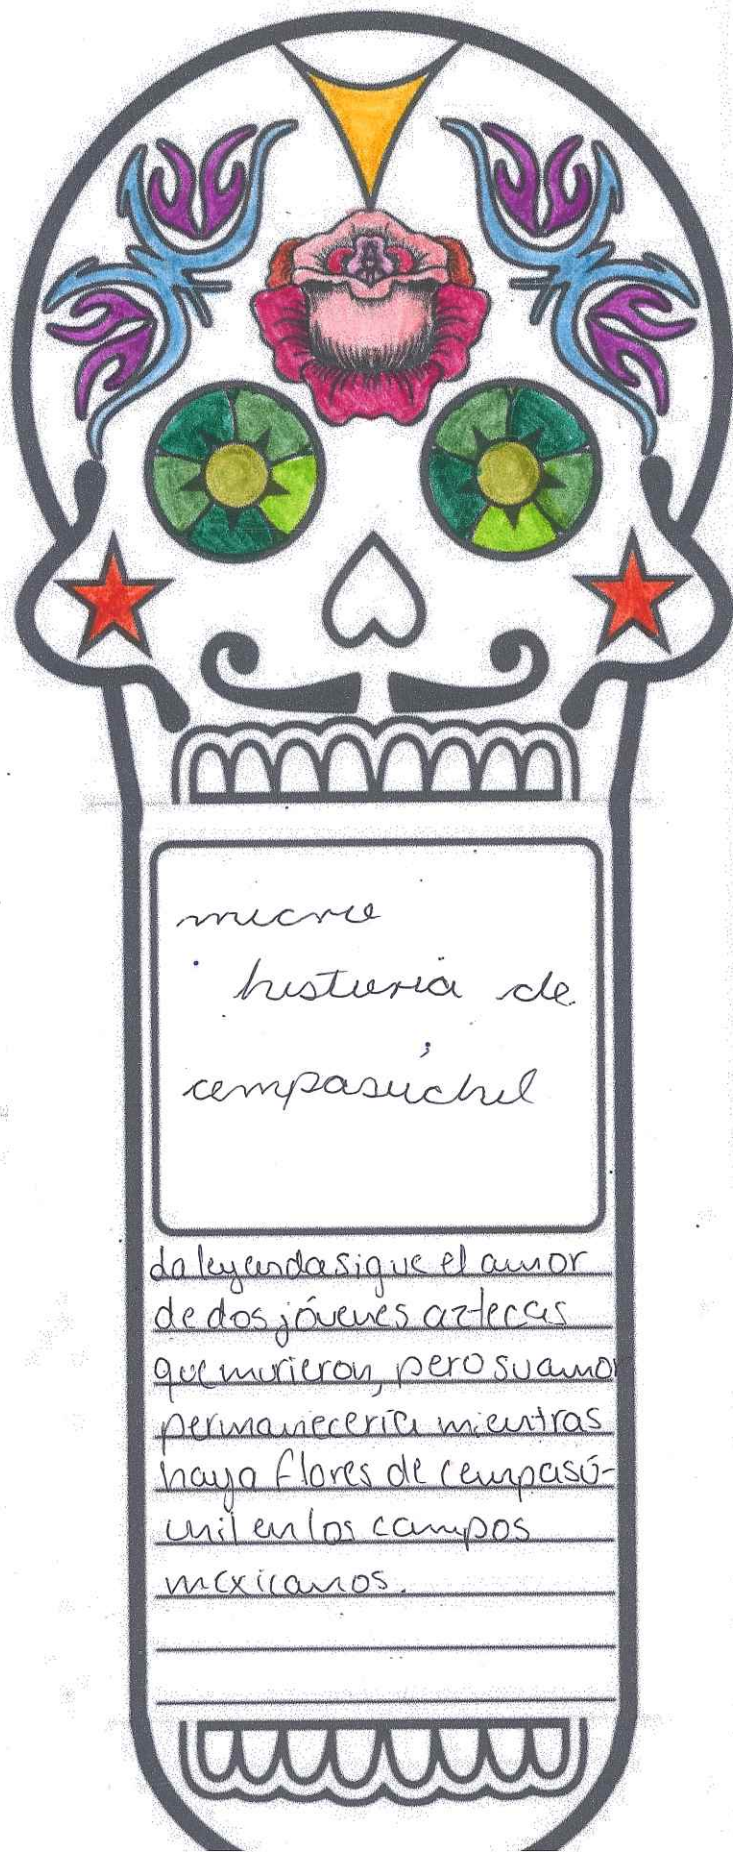 micro
historia de
cempasúchil
La leyenda sigue el amor
de dos jóvenes aztecas
que murieron, pero su amor
permanecería mientras
haya flores de cempasú-
chil en los campos
mexicanos.